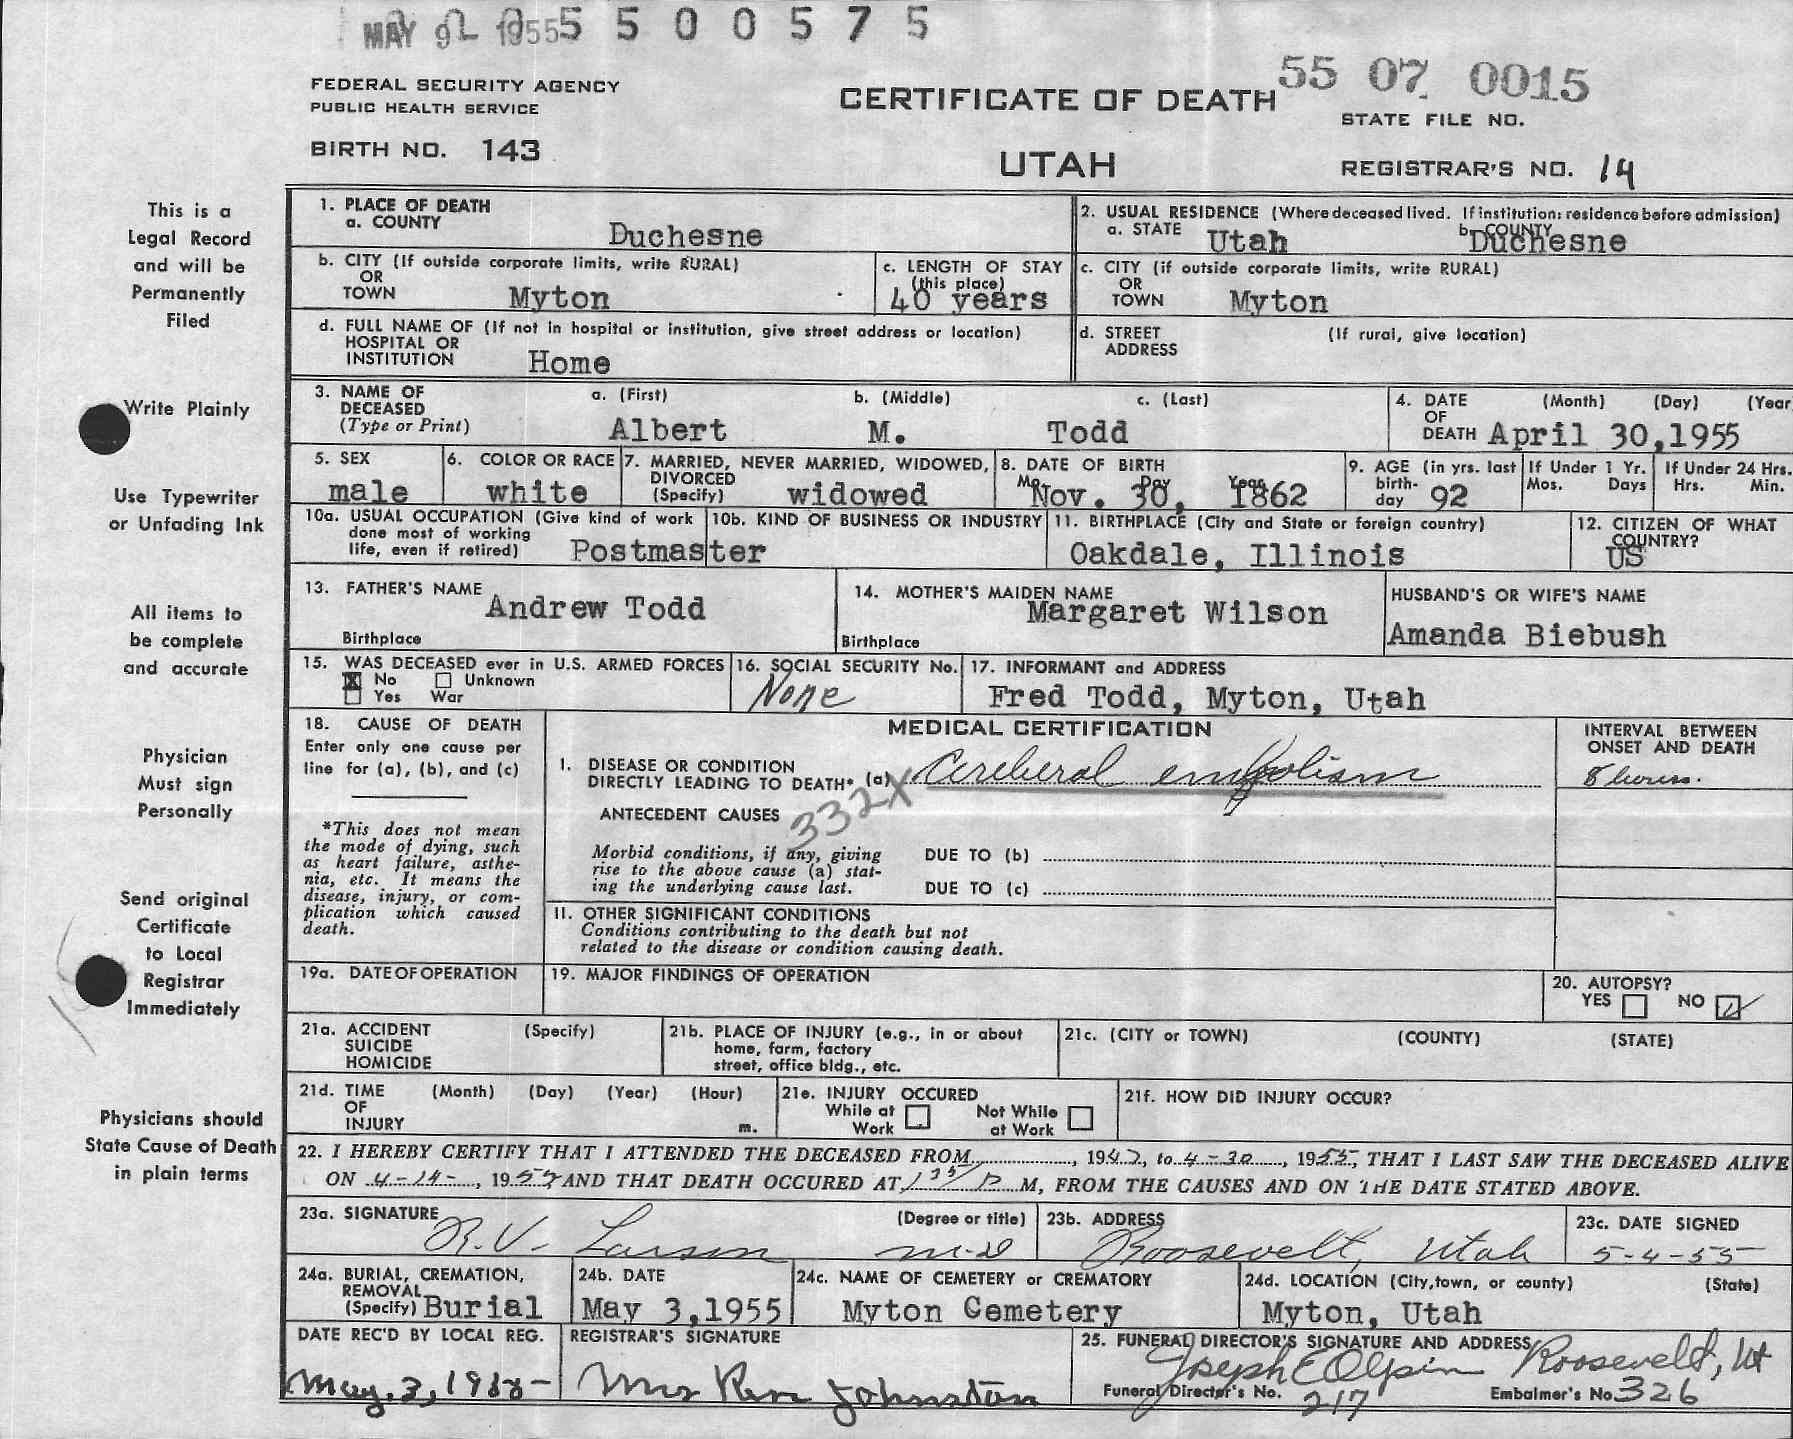 MAY 9 1955 5 5 0 0 5 7 5
FEDERAL SECURITY AGENCY
PUBLIC HEALTH SERVICE
BIRTH NO. 143
CERTIFICATE OF DEATH
UTAH
55 07 0015
STATE FILE NO.
REGISTRAR'S NO. 14
This is a
Legal Record
and will be
Permanently
Filed
Write Plainly
Use Typewriter
or Unfading Ink
All items to
be complete
and accurate
Physician
Must sign
Personally
Send original
Certificate
to Local
Registrar
Immediately
Physicians should
State Cause of Death
in plain terms
1. PLACE OF DEATH
a. COUNTY Duchesne
2. USUAL RESIDENCE (Where deceased lived. If institution: residence before admission)
a. STATE Utah b. COUNTY Duchesne
b. CITY (If outside corporate limits, write RURAL)
OR
TOWN Myton
c. LENGTH OF STAY
(this place)
40 years
c. CITY (if outside corporate limits, write RURAL)
OR
TOWN Myton
d. FULL NAME OF (If not in hospital or institution, give street address or location)
HOSPITAL OR
INSTITUTION Home
d. STREET (If rural, give location)
ADDRESS
3. NAME OF a. (First) b. (Middle) c. (Last)
DECEASED
(Type or Print) Albert M. Todd
4. DATE (Month) (Day) (Year
OF
DEATH April 30,1955
5. SEX
male
6. COLOR OR RACE
white
7. MARRIED, NEVER MARRIED, WIDOWED,
DIVORCED
(Specify) widowed
8. DATE OF BIRTH
Mo. Day Year
Nov. 30, 1862
9. AGE (in yrs. last
birth-
day 92
If Under 1 Yr.
Mos. Days
If Under 24 Hrs.
Hrs. Min.
10a. USUAL OCCUPATION (Give kind of work
done most of working
life, even if retired) Postmaster
10b. KIND OF BUSINESS OR INDUSTRY
11. BIRTHPLACE (City and State or foreign country)
Oakdale, Illinois
12. CITIZEN OF WHAT
COUNTRY?
US
13. FATHER'S NAME Andrew Todd
Birthplace
14. MOTHER'S MAIDEN NAME
Margaret Wilson
Birthplace
HUSBAND'S OR WIFE'S NAME
Amanda Biebush
15. WAS DECEASED ever in U.S. ARMED FORCES
X No Unknown
Yes War
16. SOCIAL SECURITY No.
None
17. INFORMANT and ADDRESS
Fred Todd, Myton, Utah
18. CAUSE OF DEATH
Enter only one cause per
line for (a), (b), and (c)
*This does not mean
the mode of dying, such
as heart failure, asthe-
nia, etc. It means the
disease, injury, or com-
plication which caused
death.
MEDICAL CERTIFICATION
I. DISEASE OR CONDITION
DIRECTLY LEADING TO DEATH* (a) Cereberal embolism
332X
ANTECEDENT CAUSES
Morbid conditions, if any, giving
rise to the above cause (a) stat-
ing the underlying cause last.
DUE TO (b)
DUE TO (c)
INTERVAL BETWEEN
ONSET AND DEATH
8 hours.
II. OTHER SIGNIFICANT CONDITIONS
Conditions contributing to the death but not
related to the disease or condition causing death.
19a. DATE OF OPERATION
19. MAJOR FINDINGS OF OPERATION
20. AUTOPSY?
YES NO
21a. ACCIDENT (Specify)
SUICIDE
HOMICIDE
21b. PLACE OF INJURY (e.g., in or about
home, farm, factory
street, office bldg., etc.
21c. (CITY or TOWN) (COUNTY) (STATE)
21d. TIME (Month) (Day) (Year) (Hour)
OF
INJURY m.
21e. INJURY OCCURED
While at Work
Not While at Work
21f. HOW DID INJURY OCCUR?
22. I HEREBY CERTIFY THAT I ATTENDED THE DECEASED FROM, 1947, to 4-30, 1955, THAT I LAST SAW THE DECEASED ALIVE
ON 4-14-, 1955, AND THAT DEATH OCCURED AT 1 35 P M, FROM THE CAUSES AND ON THE DATE STATED ABOVE.
23a. SIGNATURE (Degree or title)
R.V. Larsen M.D
23b. ADDRESS
Roosevelt, Utah
23c. DATE SIGNED
5-4-55
24a. BURIAL, CREMATION,
REMOVAL
(Specify) Burial
24b. DATE
May 3,1955
24c. NAME OF CEMETERY or CREMATORY
Myton Cemetery
24d. LOCATION (City,town, or county) (State)
Myton, Utah
DATE REC'D BY LOCAL REG.
May, 3, 1955
REGISTRAR'S SIGNATURE
Mrs Ken Johnston
25. FUNERAL DIRECTOR'S SIGNATURE AND ADDRESS
Joseph E Olpin Roosevelt, Ut
Funeral Director's No. 217
Embalmer's No. 326